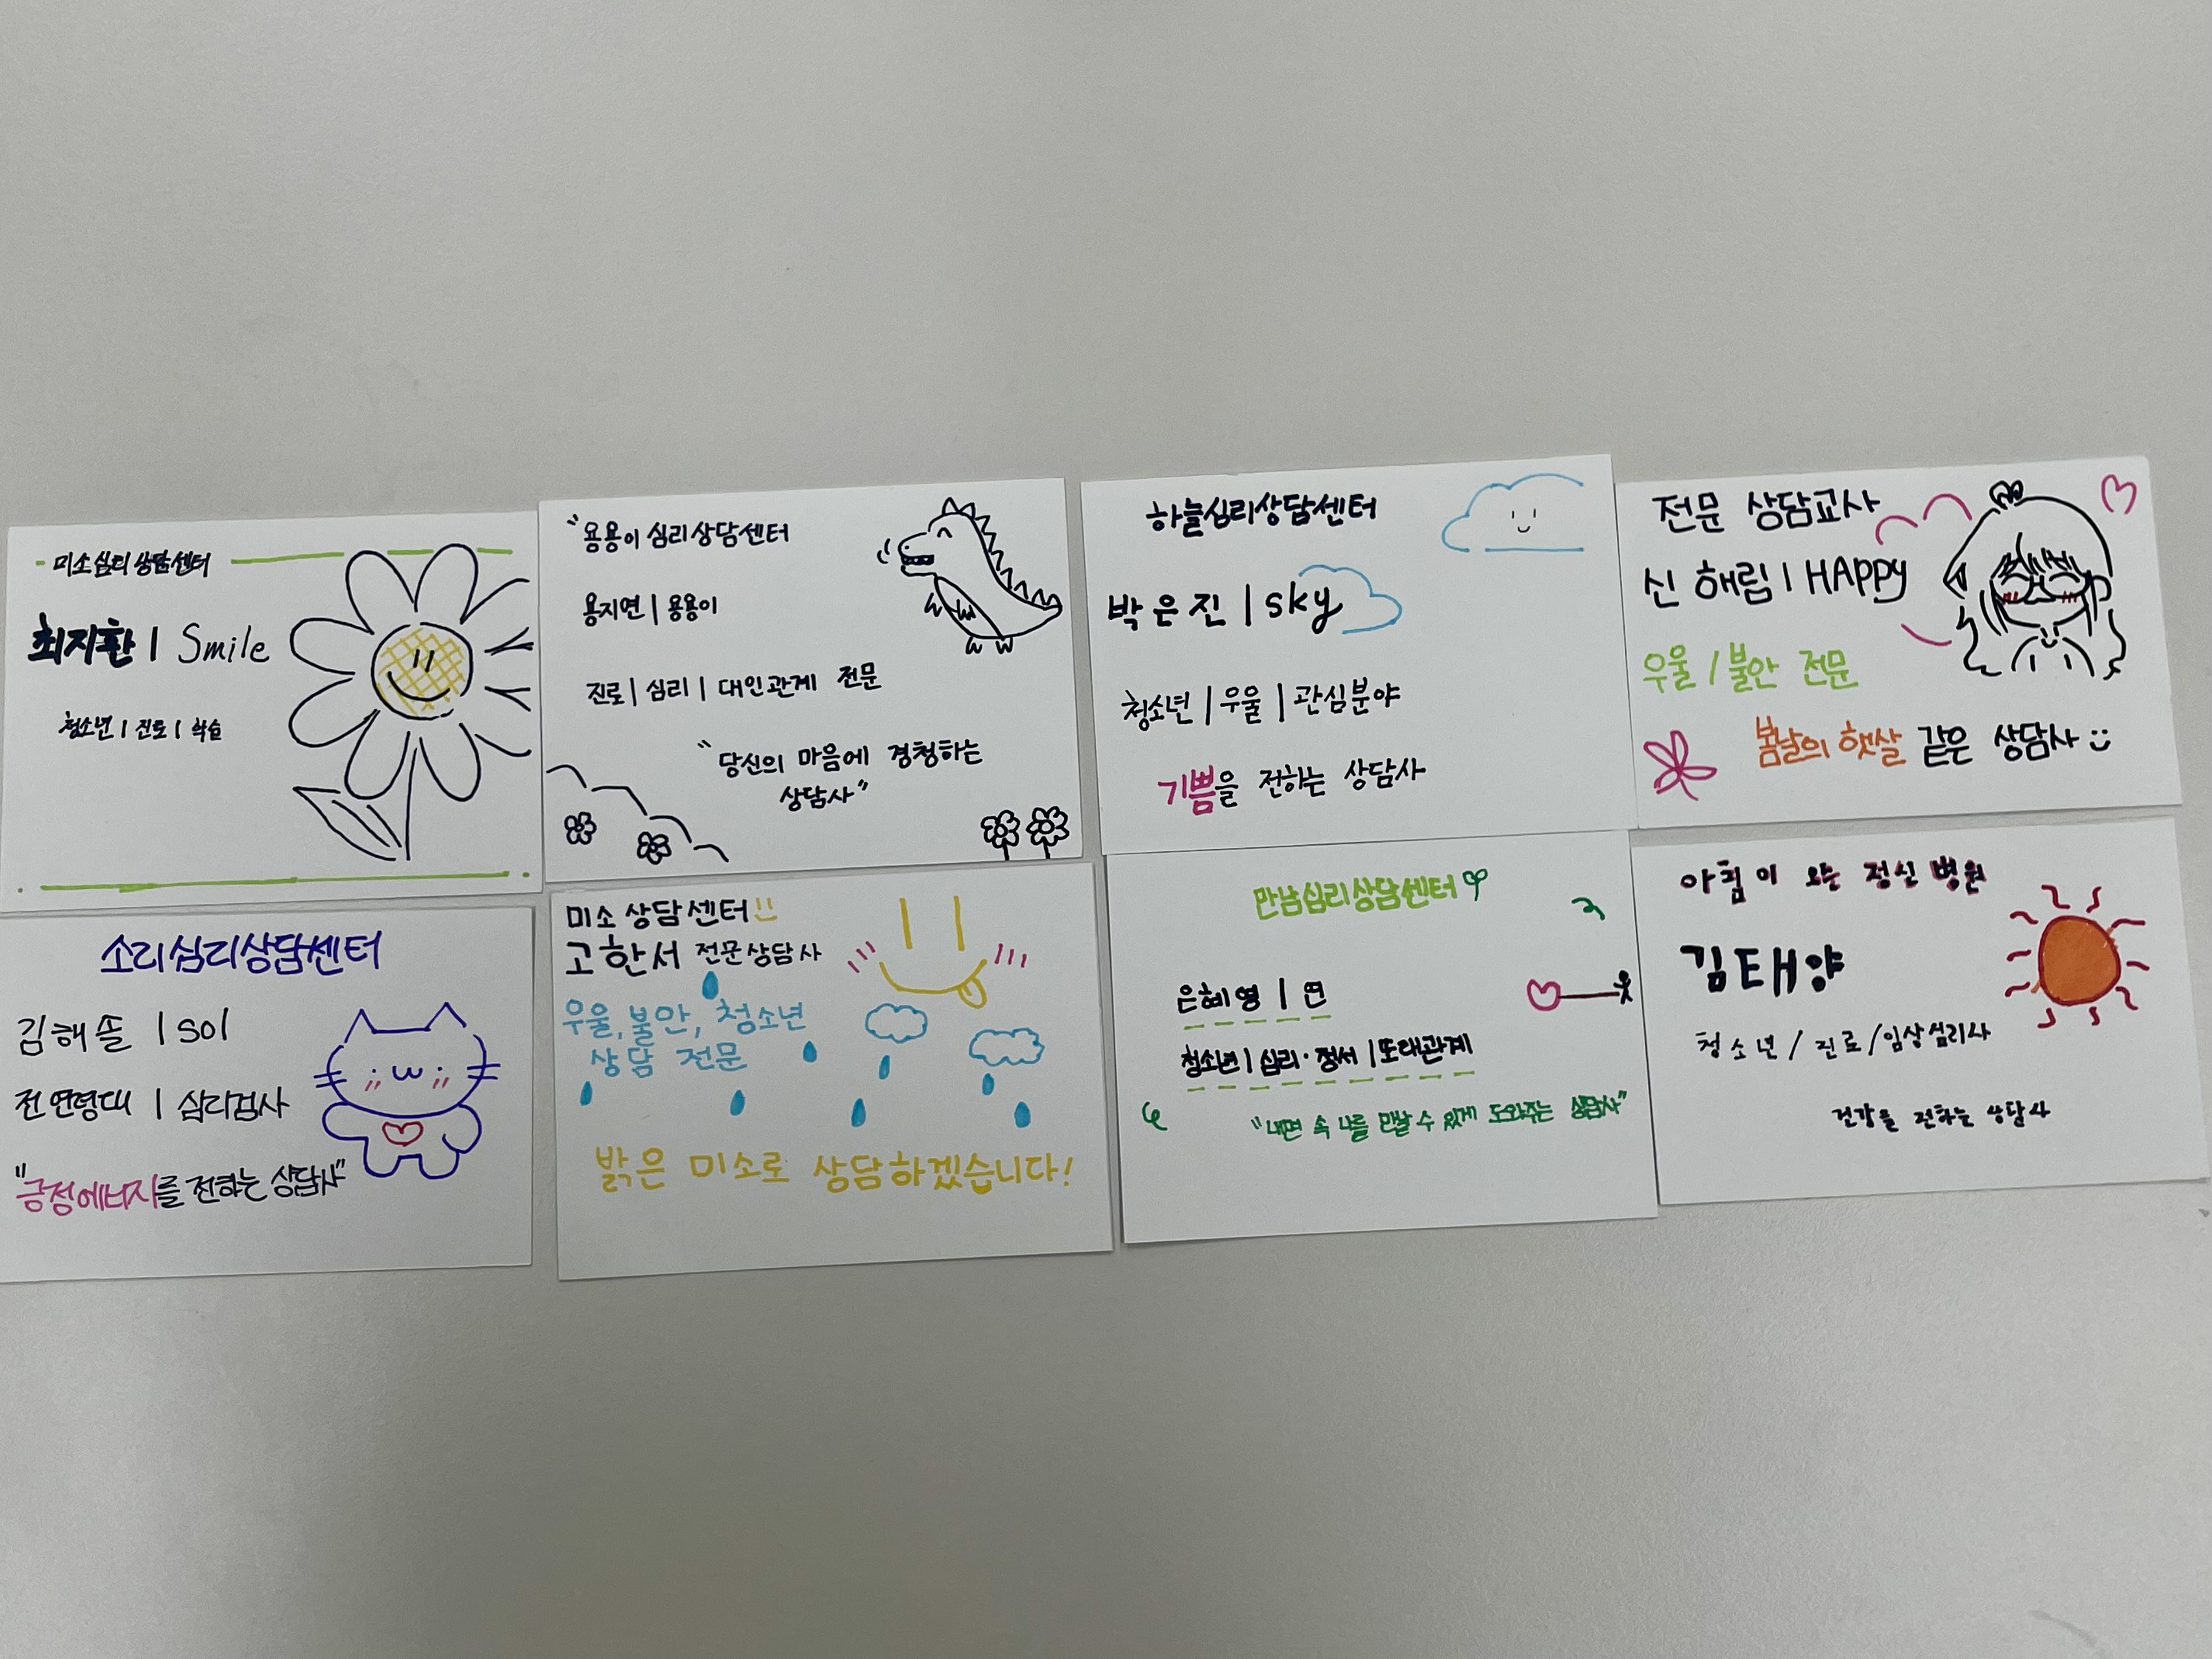 미소심리상담센터
최지환 | Smile
청소년 | 진로 | 학습
"용용이 심리상담센터
용지연 | 용용이
진로 | 심리 | 대인관계 전문
"당신의 마음에 경청하는
상담사"
하늘심리상담센터
박은진 | sky
청소년 | 우울 | 관심분야
기쁨을 전하는 상담사
전문 상담교사
신해림 | HAppy
우울 / 불안 전문
봄날의 햇살 같은 상담사
소리심리상담센터
김해솔 | sol
전연령대 | 심리검사
"긍정에너지를 전하는 상담사"
미소상담센터
고한서 전문상담사
우울, 불안, 청소년
상담 전문
밝은 미소로 상담하겠습니다!
만남심리상담센터
은혜영 | 연
청소년 | 심리·정서 | 또래관계
"내면 속 나를 만날 수 있게 도와주는 상담사"
아침이 오는 정신병원
김태양
청소년 / 진로 / 임상심리사
건강을 전하는 상담사